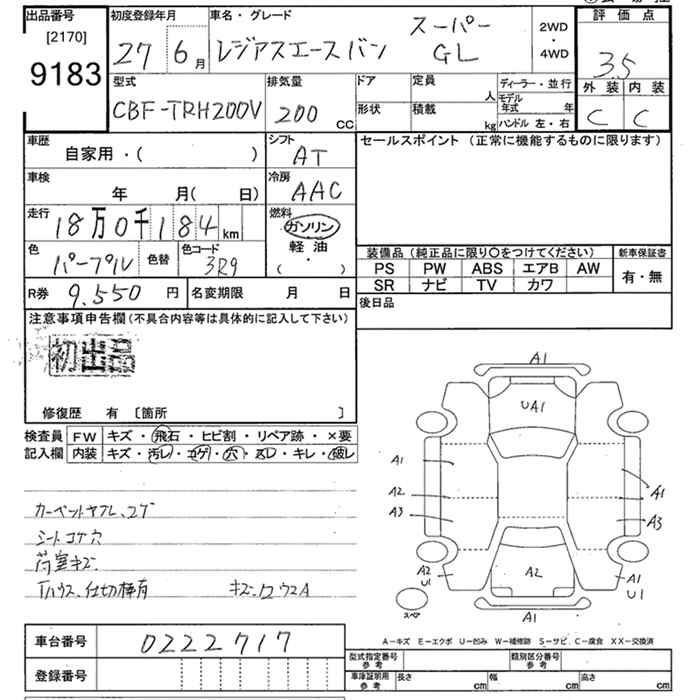 出品番号 初度登録年月 車名・グレード 評価点
[2170] スーパー 2WD
9183 27 6月 レジアスエースバン GL ・ 4WD 3.5
型式 排気量 ドア 定員 人 ディーラー・並行 外装 内装
CBF-TRH200V 200 cc 形状 積載 kg モデル年式 年 C C
ハンドル 左・右
車歴 シフト セールスポイント (正常に機能するものに限ります)
自家用・( ) AT
車検 冷房
年 月( 日) AAC
走行 燃料
18万0千184km ガソリン
色 色替 色コード 軽油
パープル 3R9 ( ・ )
装備品 (純正品に限り○をつけてください) 新車保証書
PS PW ABS エアB AW 有・無
SR ナビ TV カワ
R券 9.550 円 名変期限 月 日 後日品
注意事項申告欄 (不具合内容等は具体的に記入して下さい)
初出品
修復歴 有 〔箇所 〕
検査員 FW キズ・飛石・ヒビ割・リペア跡・×要
記入欄 内装 キズ・汚レ・コゲ・穴・スレ・キレ・破レ
カーペットヤブレ、コゲ
シートコゲ穴
荷室キズ
Tハウス、仕切棒有 キズ
A1
UA1
A1
A2
A3
A1
A3
A2
U1
A2
A1
U1
スペア
A−キズ E−エクボ U−凹み W−補修跡 S−サビ、C−腐食 XX−交換済
車台番号 0222717
登録番号
型式指定番号 参考 類別区分番号 参考
車庫証明用 参考 長さ cm 幅 cm 高さ cm